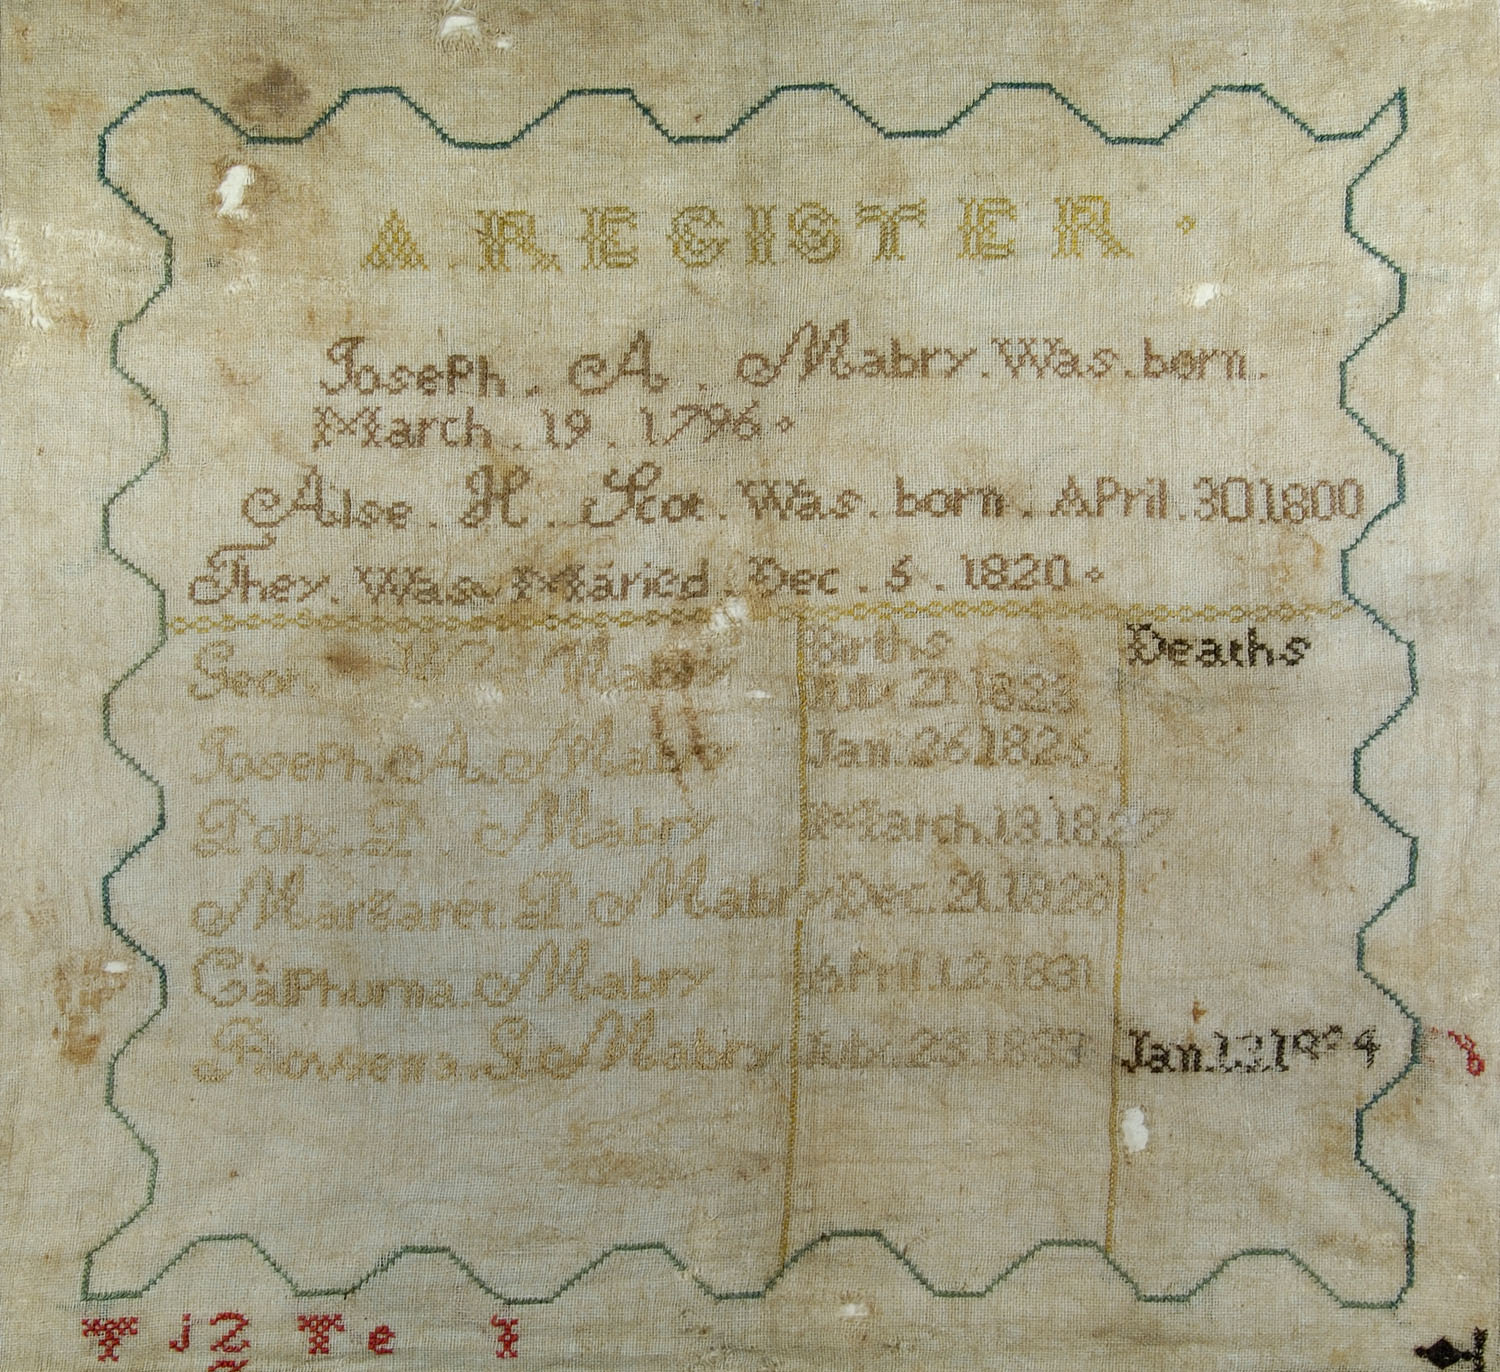 A REGISTER .
Joseph . A . Mabry . Was . born .
March . 19 . 1796 .
Alse . H . Scot . Was . born . APril . 30 1800
They . Was Maried . Dec . 5 . 1820 .
Births Deaths
Mabry July 21 1823
Joseph . A . Mabry Jan 26 1825
Mabry March . 13 . 1827
Margaret . P . Mabry Dec . 21 . 1828
Calphurna . Mabry APril . 12 . 1831
Mabry July . 23 . 1833 Jan . 12 1834
T J 2 T e I